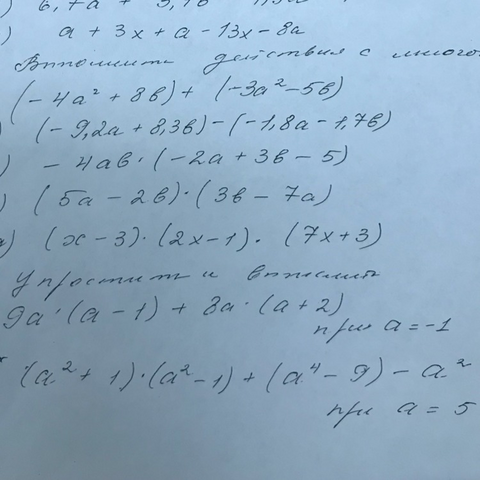 a + 3x + a - 13x - 8a
Выполнить действия с много
(-4a² + 8b) + (-3a² - 5b)
(-9,2a + 8,3b) - (-1,8a - 1,7b)
) - 4ab · (-2a + 3b - 5)
) (5a - 2b) · (3b - 7a)
) (x - 3) · (2x - 1) · (7x + 3)
Упростить и вычислить
9a · (a - 1) + 8a · (a + 2)
при a = -1
(a² + 1) · (a² - 1) + (a⁴ - 9) - a²
при a = 5